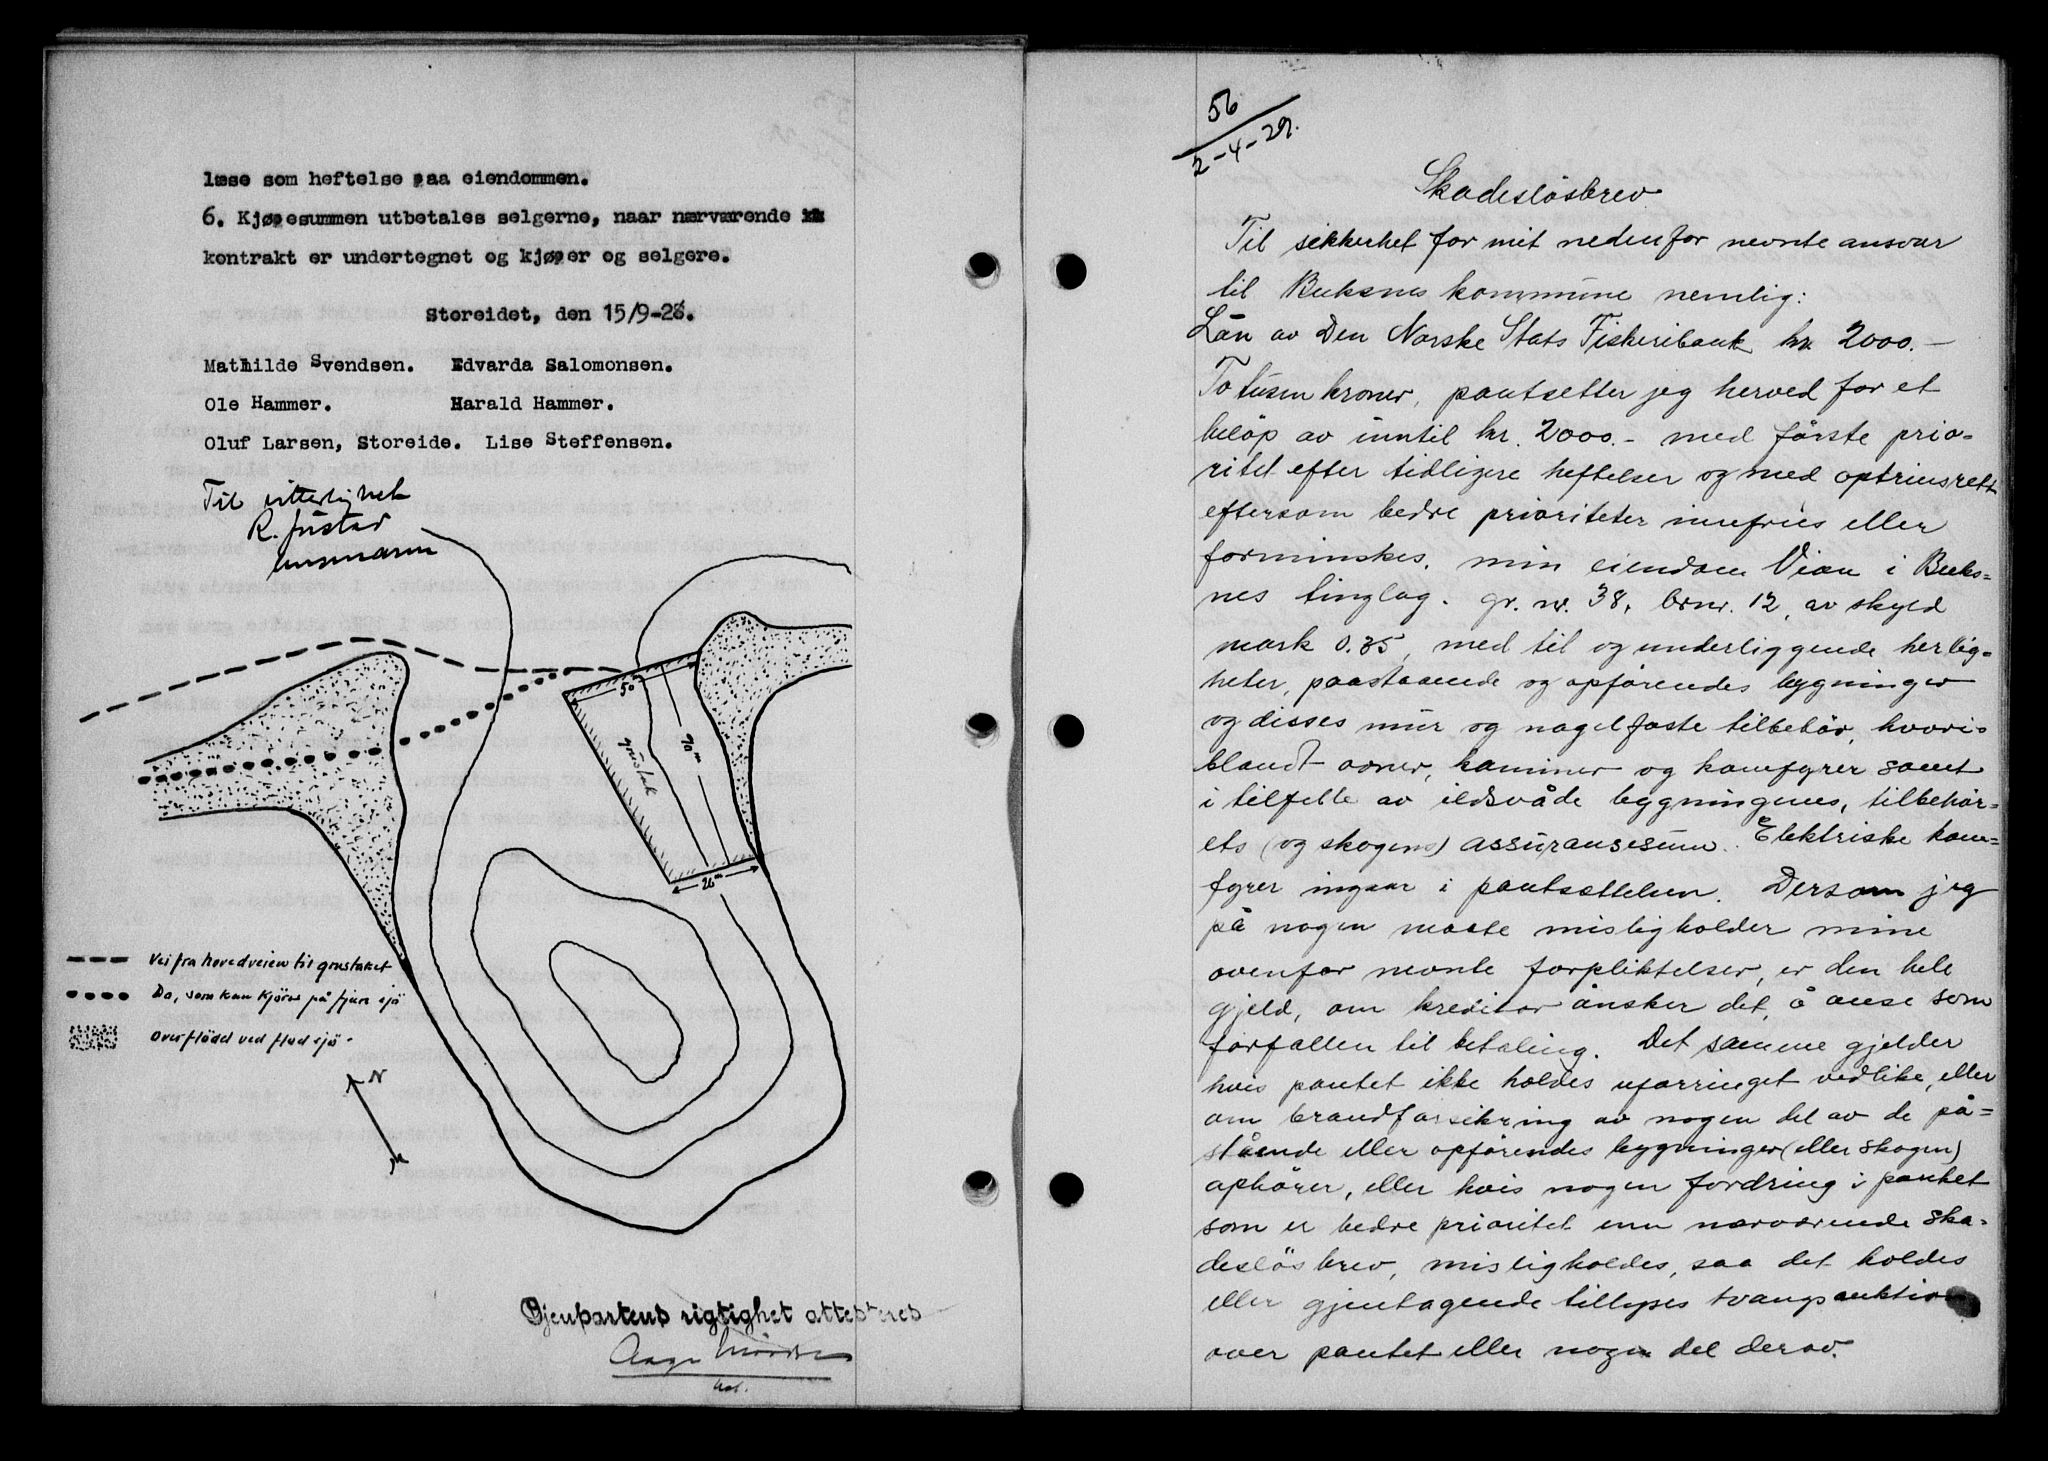 læse som heftelse paa eiendommen.
6. Kjøpesummen utbetales selgerne, naar nærværende
kontrakt er undertegnet og kjøper og selgere.
Storeidet, den 15/9-28.
Mathilde Svendsen. Edvarda Salomonsen.
Ole Hammer. Harald Hammer.
Oluf Larsen, Storeide. Lise Steffensen.
Til vitterlighet
R. Justad
lensmann
50 m
70 m
grustak
26 m
Vei fra hovedveien til grustaket
Do, som kan kjöres på fjære sjö
Overflödet ved flod sjö.
N
Gjenpartens rigtighet attesteres
Aage
56
2-4-29.
Skadeslösbrev
Til sikkerhet for mit nedenfor nevnte ansvar
til Buksnes kommune nemlig:
Lån av Den Norske Stats Fiskeribank kr. 2000.-
To tusen kroner, pantsetter jeg herved for et
belöp av inntil kr. 2000.- med förste prio=
ritet efter tidligere heftelser og med optrinsrett
eftersom bedre prioriteter innfries eller
forminskes, min eiendom Vian i Buks=
nes tinglag. gr. nr. 38, brnr. 12, av skyld
mark 0.35, med til og underliggende herlig=
heter, paastaaende og opförendes bygninger
og disses mur og nagelfaste tilbehör, hvori=
blandt ovner, kaminer og komfyrer samt
i tilfelle av ildsvåde bygningenes, tilbehör=
ets (og skogens) assuransesum. Elektriske kom=
fyrer ingaar i pantsettelsen. Dersom jeg
på nogen maate misligholder mine
ovenfor nevnte forpliktelser, er den hele
gjeld, om kreditor önsker det, å anse som
forfallen til betaling. Det samme gjelder
hvis pantet ikke holdes uforringet vedlike, eller
om brandforsikring av nogen del av de på=
stående eller opförendes bygninger (eller skogen)
ophörer, eller hvis nogen fordring i pantet
som er bedre prioritet enn nærværende ska=
deslösbrev, misligholdes, saa det holdes
eller gjentagende tillyses tvangsauktion
over pantet eller nogen del derav.